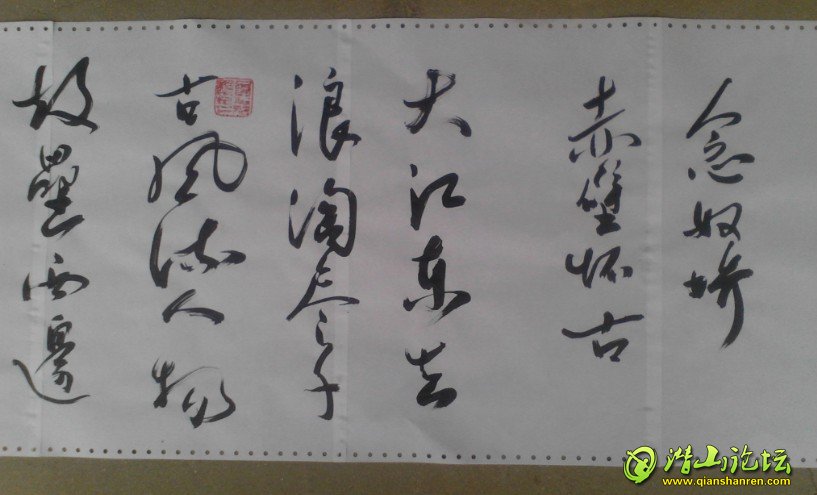 念奴娇
赤壁怀古
大江东去
浪淘尽千
古风流人物
故壘西邊
潜山论坛
www.qianshanren.com